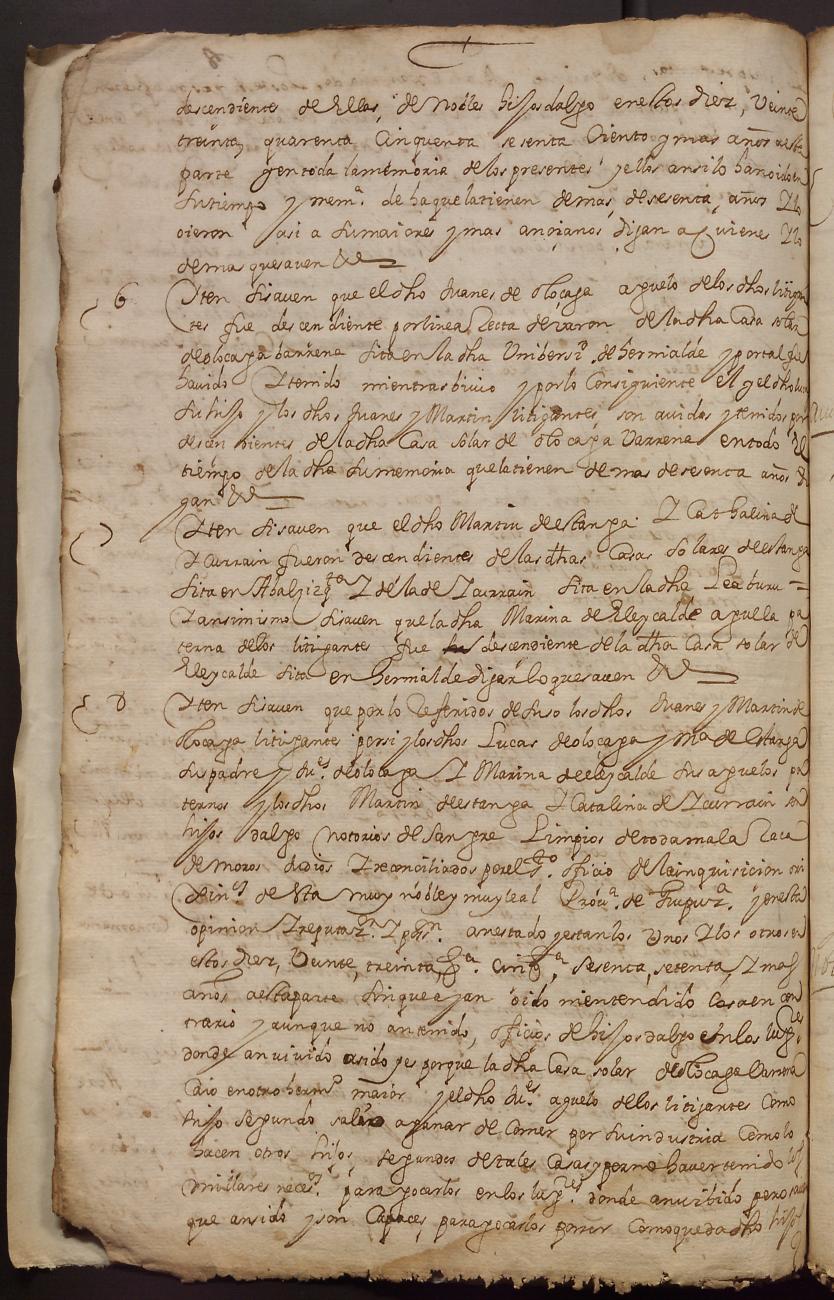 descendiente de Ellas, de nobles hijosdalgo en estos diez, Veinte
treinta, quarenta Cinquenta sesenta Ciento y mas años a esta
parte y en toda la memoria de los presentes y ellos ansi lo han oido en
su tiempo y mem.ª de ha que la tienen de mas de sesenta años Y lo
oieron asi a sus maiores y mas ançianos digan a Quienes Y lo
demas que saven &&
6 Yten si saven que el dho Juanes de olocaga aguelo de los dhos litigan
tes fue descendiente por linea Recta de varon de la dha Casa solar
de olocaga barrena sita en la dha Unibersi.d de hernialde y por tal fue
havido Y tenido mientras bivio y por lo Consiguiente el y el dho
su hijo y los dhos Juanes y Martin litigantes son avidos y tenidos por
descendientes de la dha Casa solar de olocaga Varrena en todo el
tiempo de la dha su memoria que la tienen de mas de sesenta años di
gan &&
7 Yten si saven que el dho Martin de estanga Y Cathalina de
Yturrain fueron descendientes de las dhas Casas solares de estanga
sita en Abalzizqta Y de la de Yturrain sita en la dha Leaburu =
Y ansimismo si saven que la dha Marina de Eleycalde aguela pa
terna de los litigantes fue descendiente de la dha Casa solar de
Eleycalde sita en hernialde digan lo que saven &&
8 Yten si saven que por lo Referido de suso los dhos Juanes y Martin de
olocaga litigantes por si y los dhos Lucas de olocaga y M.ª de estanga
sus padres y Ju.es de olocaga Y Marina de eleycalde sus aguelos pa
ternos y los dhos Martin de estanga Y Catalina de Yturrain son
hijos dalgo notorios de sangre Limpios de toda mala Raca
de moros Judios Y reconciliados por el S.to officio de la inquisicion ori
Xin.s de esta muy noble y muy leal Prov.ª de Guipuz.ª y en esta
opinion Y reputaz.n Y posn. an estado y estan los Unos Y los otros en
estos diez, Veinte, treinta, q.ta cinq.ta sesenta, setenta, Y mas
años a esta parte sin que se jan oido ni entendido cosa en con
trario y aunque no an tenido officios de hijosdalgo en los lug.res
donde an vivido a sido y es porque la dha Casa solar de olocaga Varrena
Caio en otro herm.o maior y el dho Ju.es aguelo de los litigantes Como
hijo segundo salio a ganar de Comer por su industria Como lo
hacen otros hijos segundos de tales Casas y por no haver tenido los
millares neces.s para gocarlos en los lug.res donde an vibido pero
que an sido y son Capaces para gocarlos por ser Como queda dho hijos